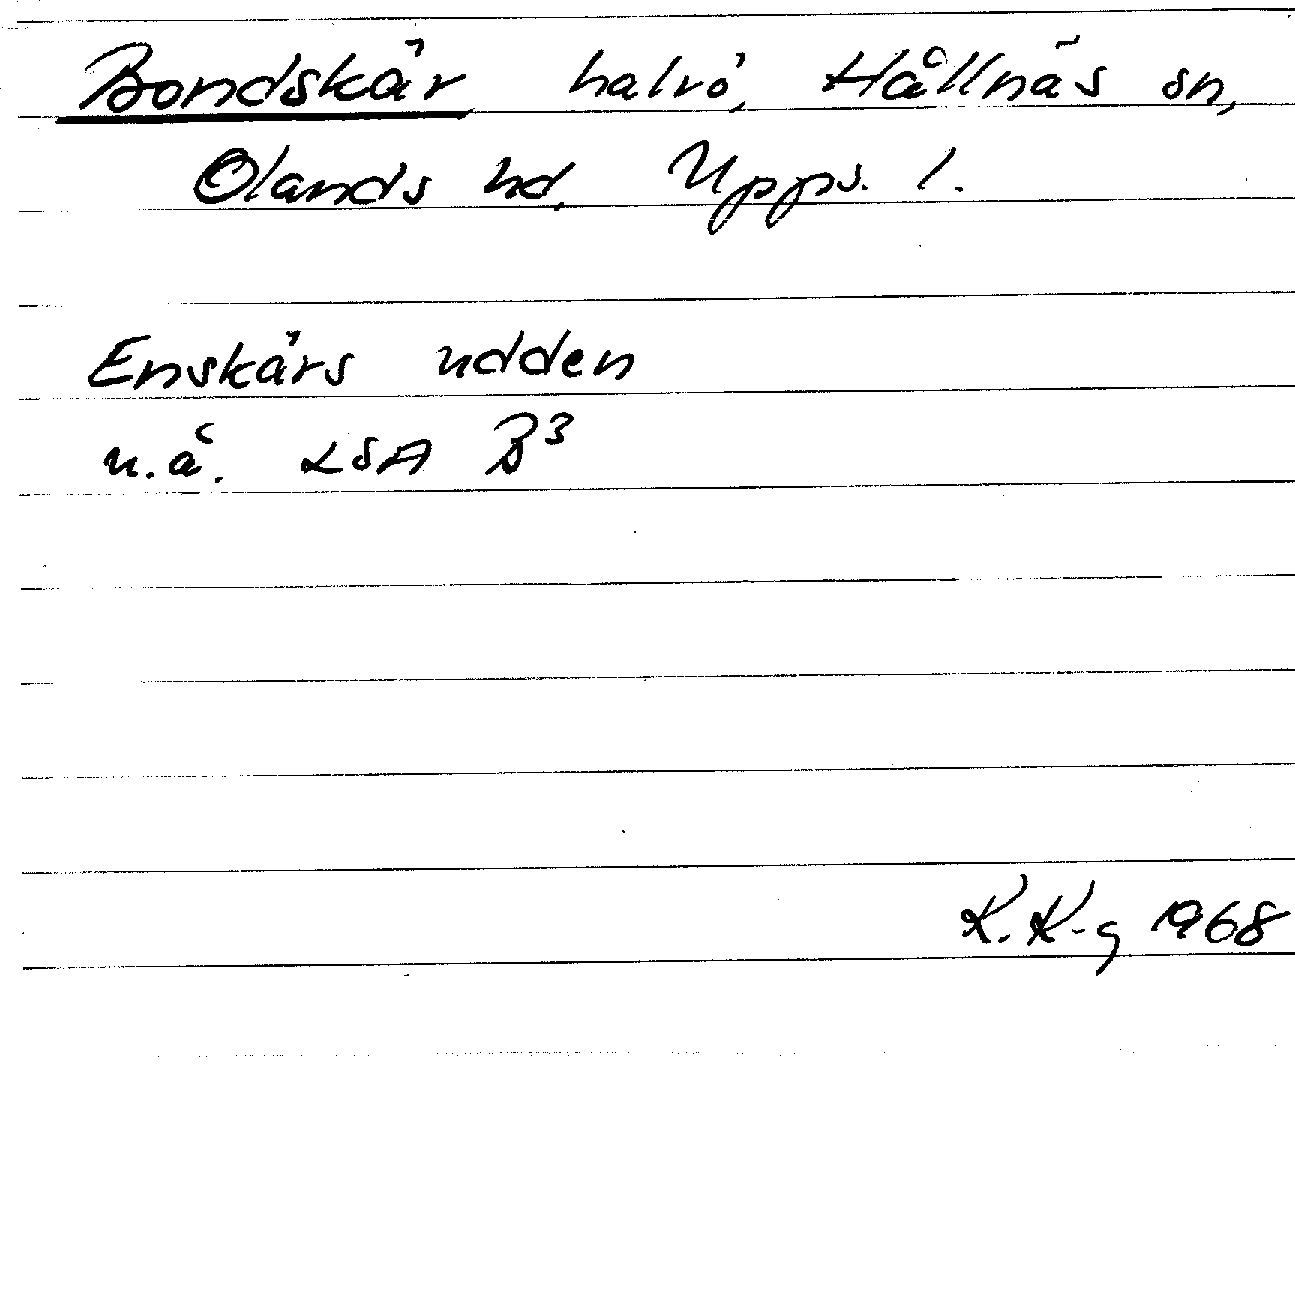 Bondskär halvö, Hållnäs sn,
Olands hd, Upps. l.
Enskärs udden
u.å. LSA B³
K. K-g 1968